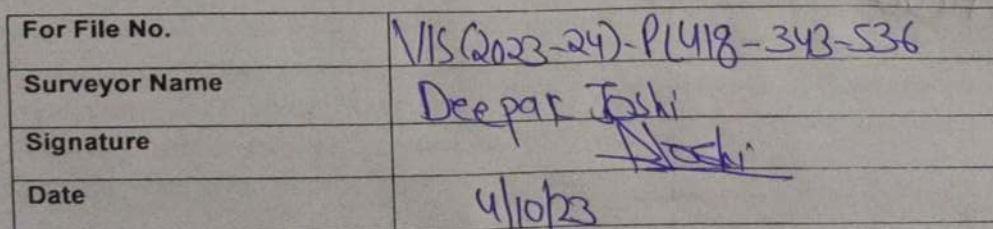 For File No. VIS(2023-24)-PL418-343-536
Surveyor Name Deepak Joshi
Signature DJoshi
Date 4/10/23